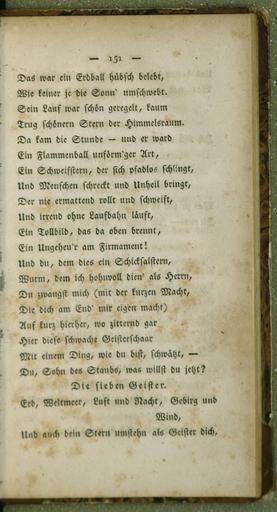 — 151 —
Das war ein Erdball hübsch belebt,
Wie keiner je die Sonn' umschwebt.
Sein Lauf war schön geregelt, kaum
Trug schönern Stern der Himmelsraum.
Da kam die Stunde — und er ward
Ein Flammenball unförm'ger Art,
Ein Schweifstern, der sich pfadlos schlingt,
Und Menschen schreckt und Unheil bringt,
Der nie ermattend rollt und schweift,
Und irrend ohne Laufbahn läuft,
Ein Tollbild, das da oben brennt,
Ein Ungeheu'r am Firmament!
Und du, dem dies ein Schicksalstern,
Wurm, dem ich hohnvoll dien' als Herrn,
Du zwangst mich (mit der kurzen Macht,
Die dich am End' mir eigen macht)
Auf kurz hierher, wo zitternd gar
Hier diese schwache Geisterschaar
Mit einem Ding, wie du bist, schwätzt, —
Du, Sohn des Staubs, was willst du jetzt?
Die sieben Geister.
Erd, Weltmeer, Luft und Nacht, Gebirg und
Wind,
Und auch dein Stern umstehn als Geister dich,